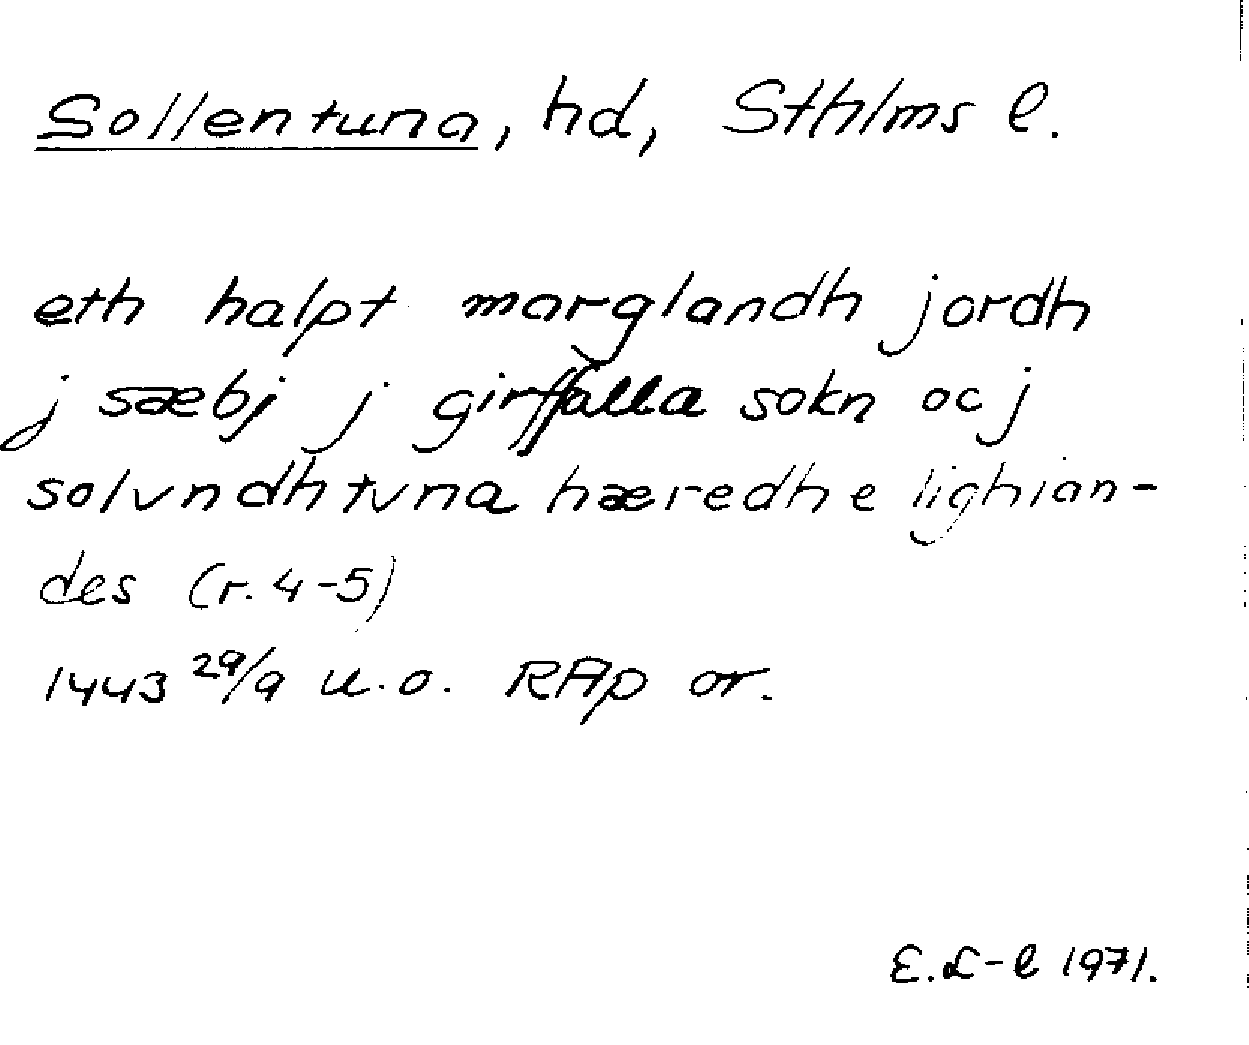 Sollentuna, hd, Sthlms l.
eth halpt marglandh jordh
j sæbj j girffalla sokn oc j
solvndhtvna hæredhe lighian-
des (r. 4-5)
1443 29/9 u.o. RAp or.
E.L-l 1971.